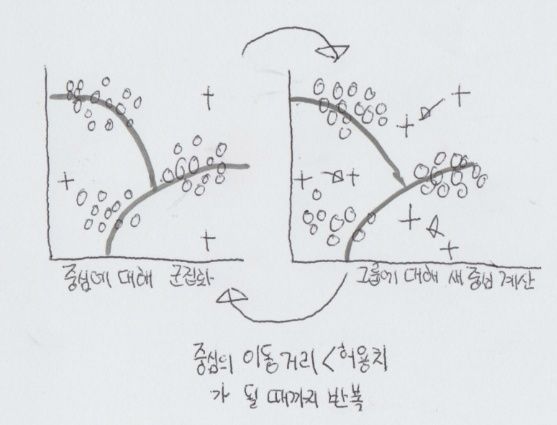 중심에 대해 군집화
그룹에 대해 새 중심 계산
중심의 이동거리 < 허용치
가 될 때까지 반복